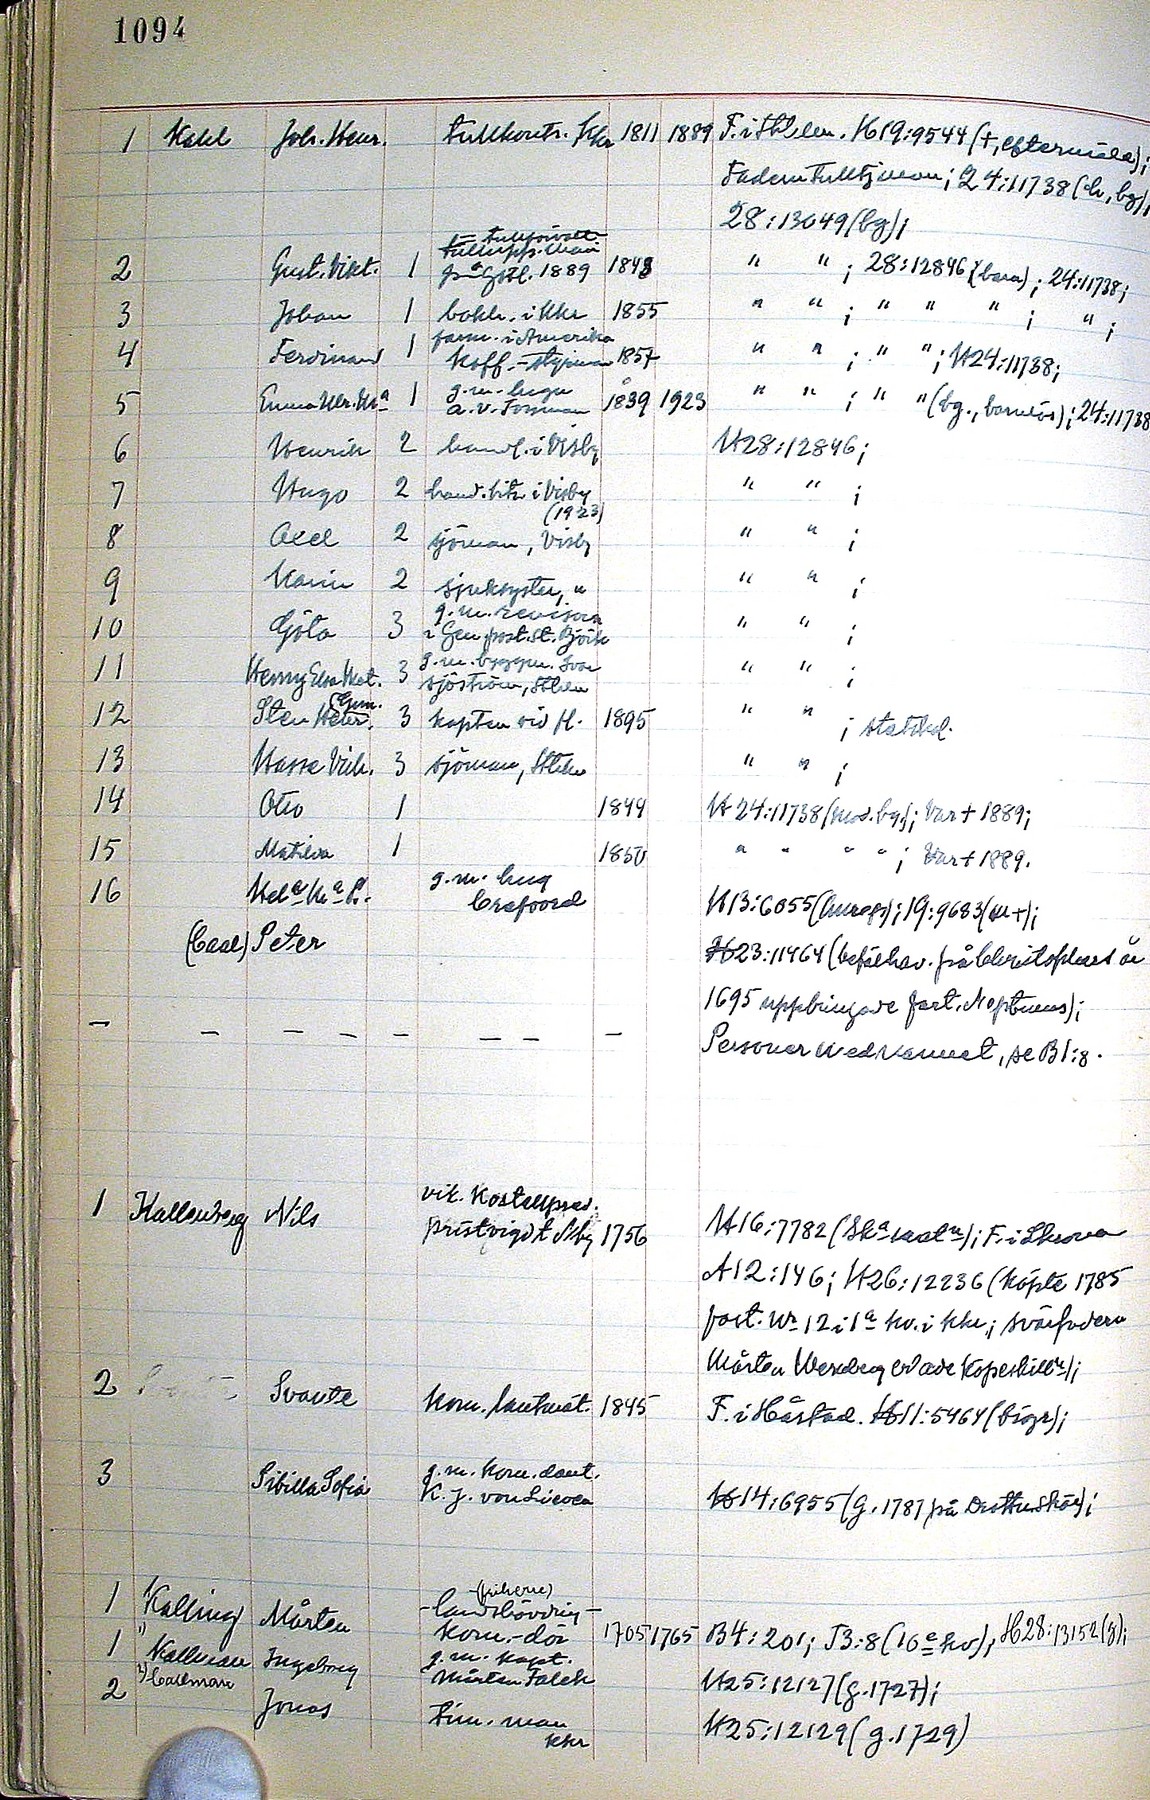 1094
1 Kahl Joh. Henr. tullkontr. Kkr 1811 1889 F. i Sthlm. H19:9544 (+, eftermäle);
Fadern tulltjman; 24:11738 (h, bg);
28:13049 (bg);
2 Gust. Vikt. 1 tulluppsman på Gotl. 1889 1848 " " ; 28:12846 (barn); 24:11738;
3 Johan 1 bokh. i Kkr 1855 " " ; " " " ; " ;
farm. i Amerika
4 Ferdinand 1 Koff.-styrman 1857 " " ; " " ; H24:11738;
5 Emma Ulr. Ma 1 g.m. 1839 1923 " " ; " " (bg., barnlös); 24:11738
a. v.
6 Henrik 2 handl. i Visby H28:12846;
7 Hugo 2 hand. bitr. i Visby " " ;
(1923)
8 Axel 2 sjöman, Visby " " ;
9 Karin 2 sjuksyster, " " " ;
10 Göta 3 g.m. revisorn " " ;
i Gen. post. st. Björk
11 Henny Elsa Mat. 3 g.m. byggm. Ivar " " ;
Sjöström, Sthlm
12 Sten Henr. (Gum. 3 kapten vid fl. 1895 " " ; statskal.
13 Hasse Vilh. 3 sjöman, Sthlm " " ;
14 Otto 1 1844 H24:11738 (mod. bg); Var + 1889;
15 Matilda 1 1850 " " " " ; Var + 1889.
16 Hela Ma P. g.m. H13:6055 ; 19:9683 (m +);
Crafoord
(Caal) Peter H23:11464 (befälhav. på år
1695 uppbringade fart. Neptunus);
— — — — — — — — Personer med namnet, se B1:8.
vik. Kastellpred.
1 Kallenberg Nils prästvigd t. Åby 1756 H16:7782 ; F. i Skurva
A12:146; H26:12236 (köpte 1785
fast. Nr 12 i 1a kv. i Kkr; svärfadern
Mårten Wendberg köpeskilln);
2 Svante Kom. lantmät. 1845 F. i Håstad. H11:5464 (biogr);
3 Sibilla Sofia g.m. Kom. lant.
K. J. von H14:6955 (g. 1787 på Drottninskär);
(friherre)
1 Kalling Mårten -landshövding-
Kom.-dör 1705 1765 B4:201; J3:8 (16e kv); H28:13152 (g);
1 1) Kallman Ingeborg g.m. kapt.
2) Callman Mårten Falck H25:12127 (g. 1727);
2 Jonas tim. man
Kkr H25:12129 (g. 1729)